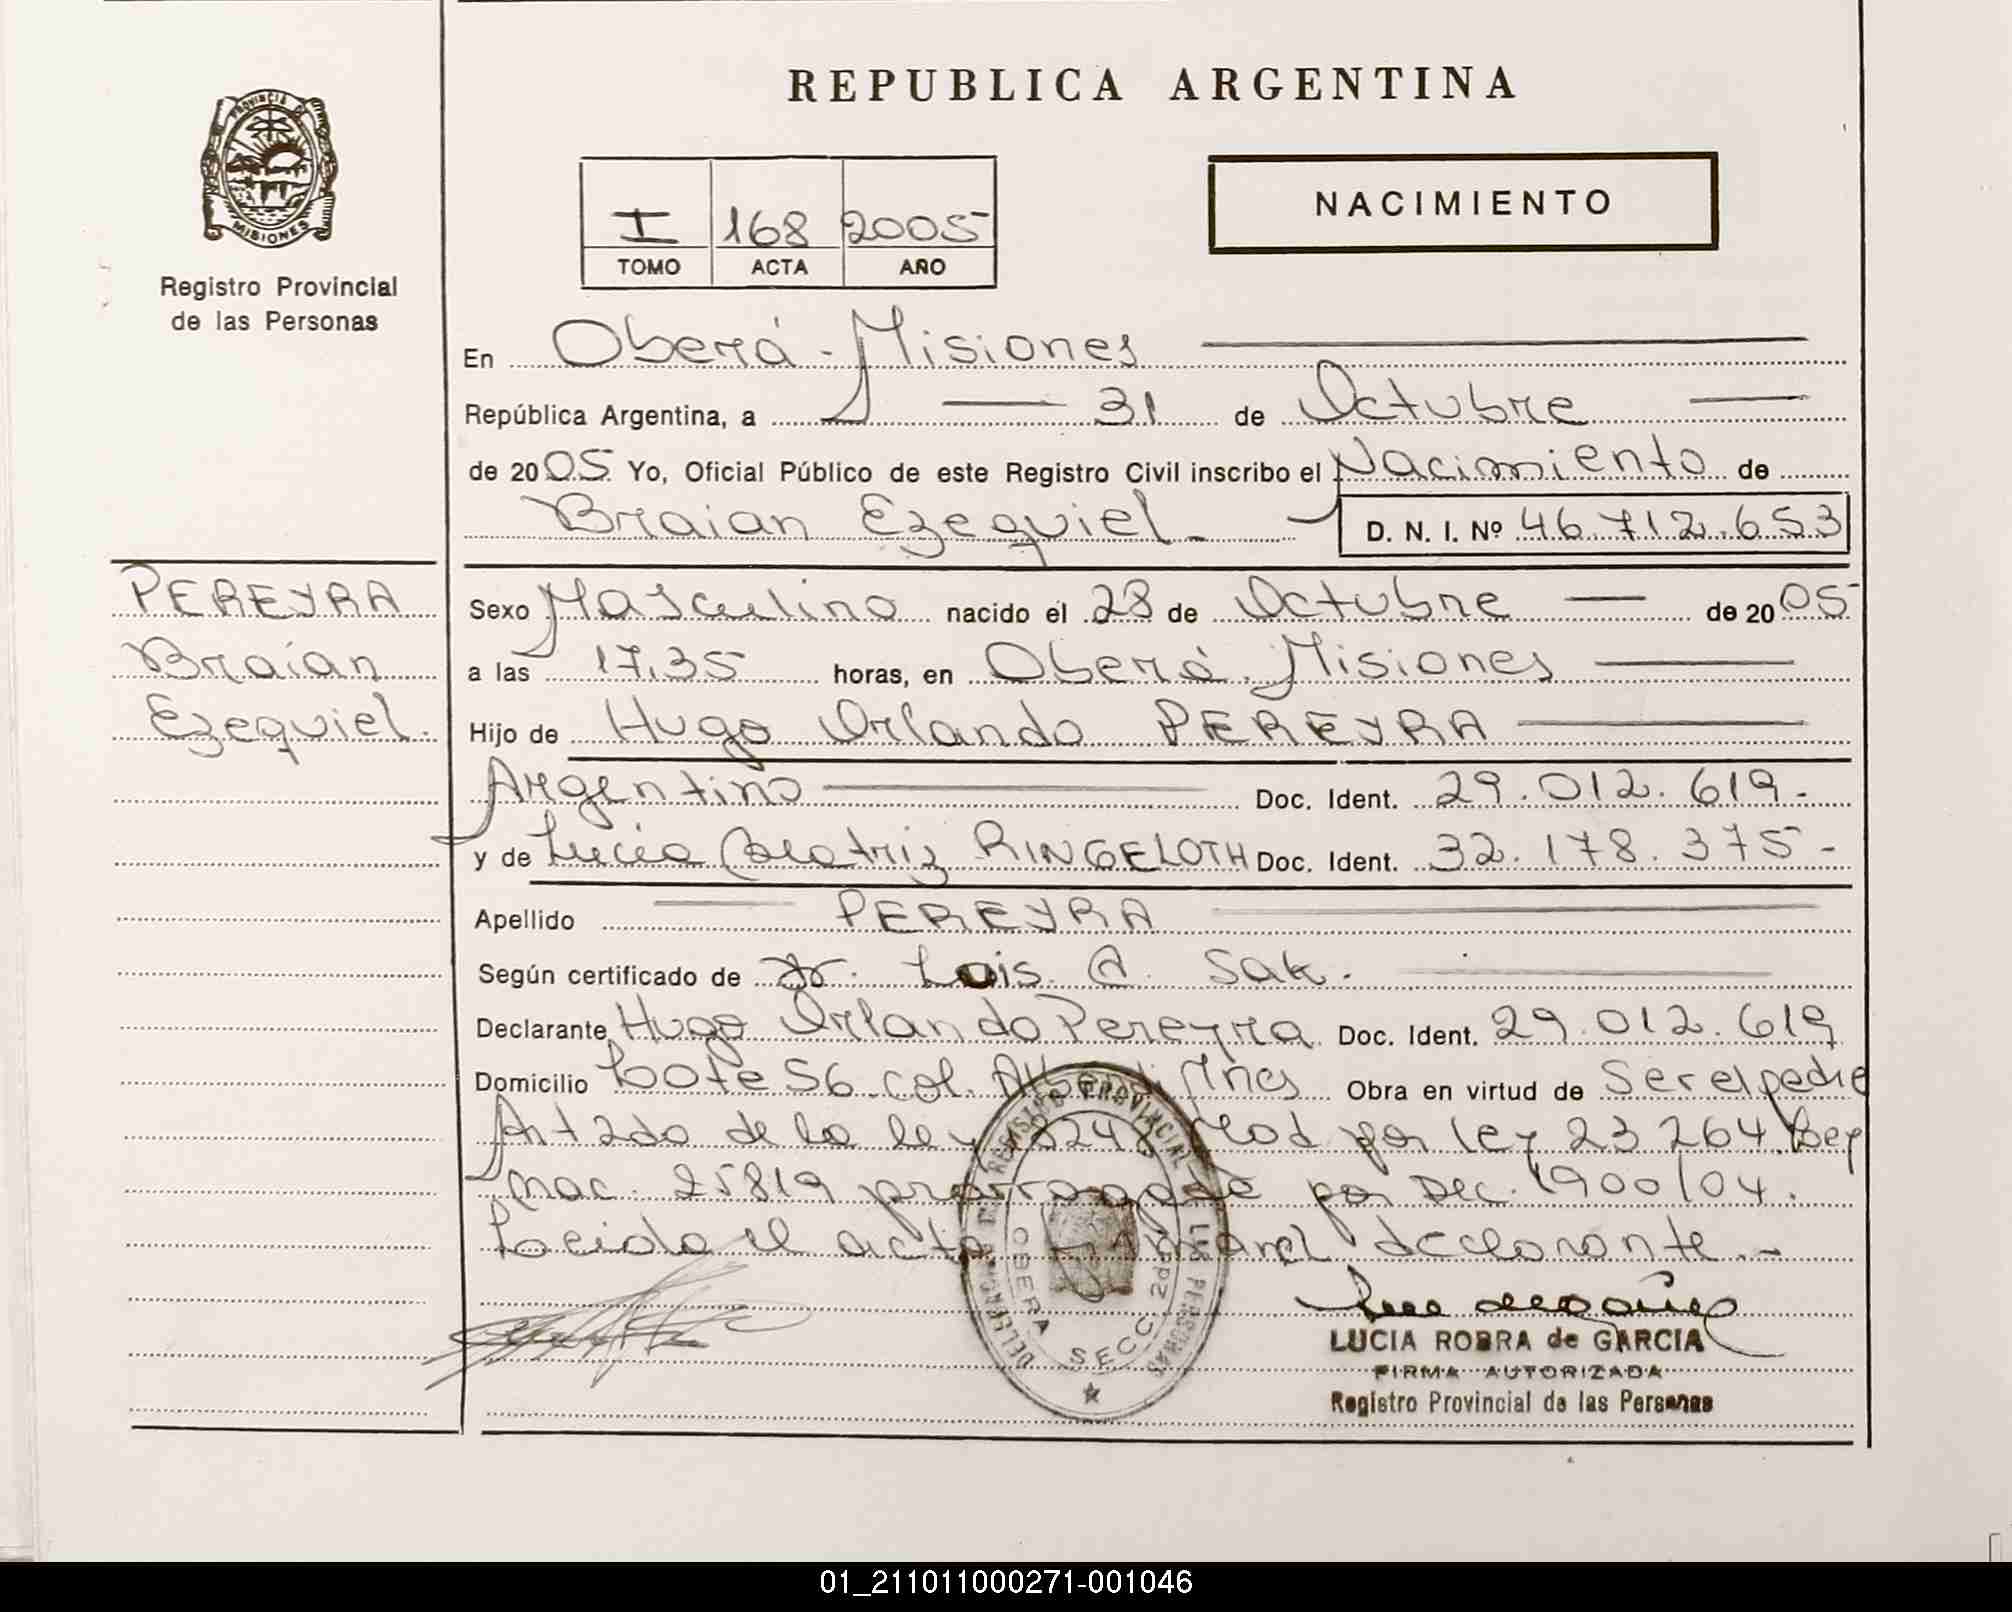 REPUBLICA ARGENTINA
PROVINCIA DE
MISIONES
Registro Provincial
de las Personas
I 168 2005
TOMO ACTA AÑO
NACIMIENTO
En Oberá - Misiones
República Argentina, a 31 de Octubre
de 2005 Yo, Oficial Público de este Registro Civil inscribo el Nacimiento de
Braian Ezequiel - D. N. I. Nº 46.712.653
PEREYRA
Braian
Ezequiel.
Sexo Masculino nacido el 28 de Octubre de 2005
a las 17,35 horas, en Oberá. Misiones
Hijo de Hugo Orlando PEREYRA
Argentino Doc. Ident. 29.012.619.-
y de Lucía Beatriz RINGELOTH Doc. Ident. 32.178.375-
Apellido PEREYRA
Según certificado de Dr. Luis. A. Sak.
Declarante Hugo Orlando Pereyra Doc. Ident. 29.012.619
Domicilio Lote 56 col. Alberdi Mnes Obra en virtud de Ser expedie
Art 2do de la ley 18248 Mod por ley 23264. Ley
Nac. 25819 prorrogada por Dec. 1900/04.
Leida el acta declarante.-
DELEGACION REGISTRO PROVINCIAL DE LAS PERSONAS
OBERA SECC. 2da
LUCIA ROBRA de GARCIA
FIRMA AUTORIZADA
Registro Provincial de las Personas
01_211011000271-001046